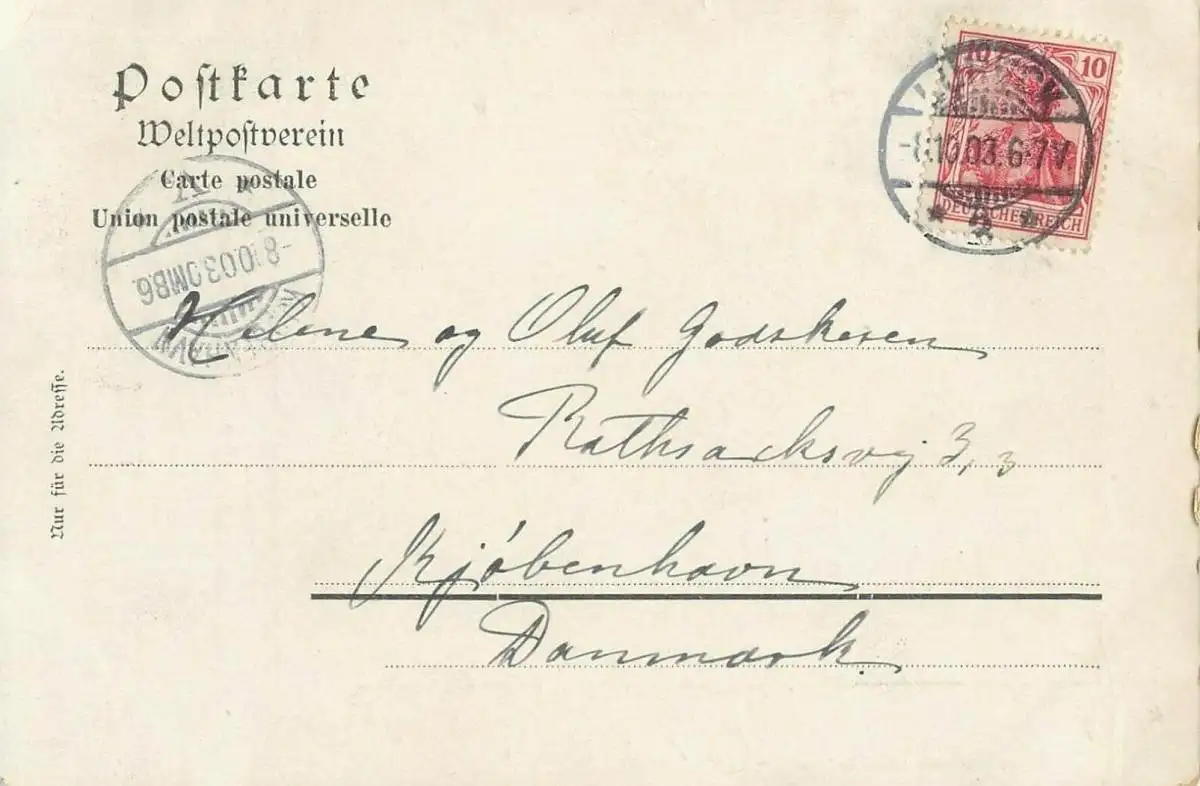 Postkarte
Weltpostverein
Carte postale
Union postale universelle
10
10
-8.10.03.6-7V.
DEUTSCHES REICH
2
8.10.03 OMB6
Helene og Oluf Godskesen
Rathsacksvej 3, 3
Kjöbenhavn
Danmark
Nur für die Adresse.